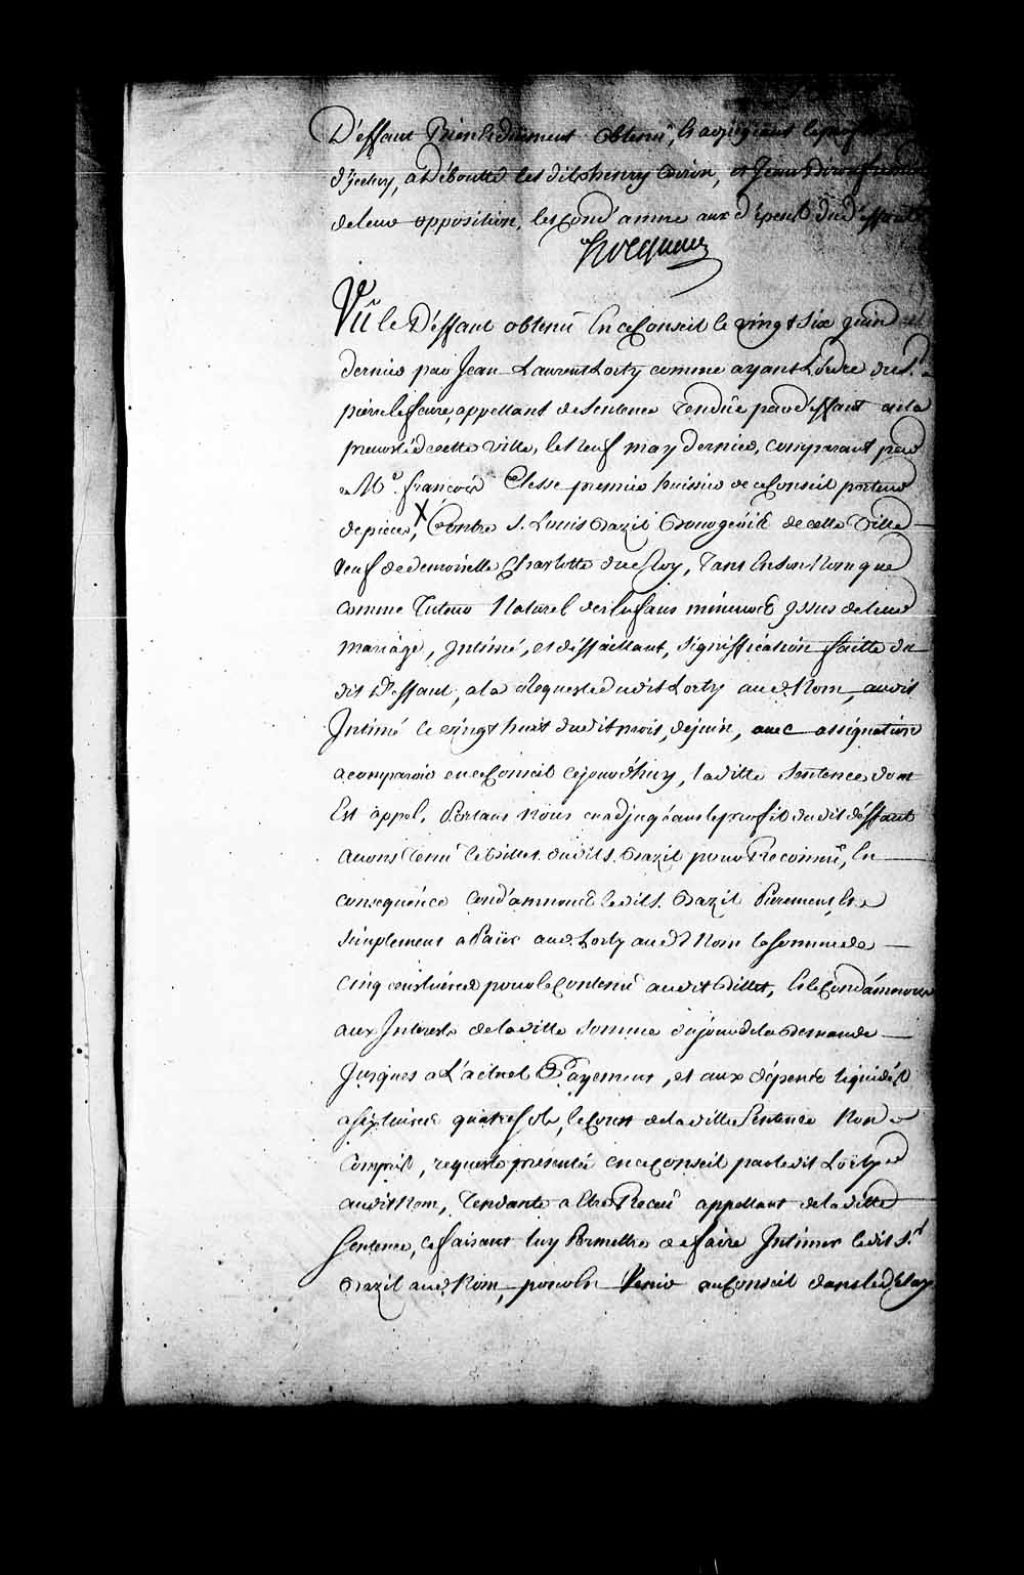 Déffaut Bien & düement obtenu, & adjugeant le profit
d'Jceluy, a Déboutté les dits henry hiron, et Jean
de leur opposition, les Cond'amne aux d'épens du d'éffaut
hocquart
Vû le D'effaut obtenu En ce Conseil le vingt six juin
dernier par Jean Laurent Lorty comme ayant L'ordre du S.
pierre le faure, appellant de Sentence rendüe par deffaut en la
prevosté de cette ville, le neuf may dernier, comparant par
M.e francois Clesse premier huissier de ce Conseil porteur
de pieces, X Contre S. Louis Bazil Bourgeois de cette ville
veuf de demoiselle Charlotte duroy, tant En son Nom que
comme Tuteur Naturel des Enfans mineurs Jssus de leur
mariage, Jntimé, et déffaillant, Signiffication faitte du
dit D'effaut, a la Requeste dudit Lorty aud. Nom, audit
Jntimé le vingt huit dudit mois, de juin, avec assignation
a comparoir en ce Conseil cejourd'huy, laditte Sentence dont
Est appel, Portant Nous en adjugéant le profit dudit déffaut
avons tenu le Billet dudit S. Bazil pour Reconnu, En
consequence Cond'amnons ledit S. Bazil Purement &
Simplement a Païer aud. Lorty aud. Nom la Somme de
Cinq cens livres pour le Contenu audit Billet, & le Cond'amnons
aux Jnterests de laditte Somme du jour de la Demande
Jusques a L'actuel Payement, et aux dépens liquidés
a six livres quatre sols, le Cout de laditte Sentence Non
Compris, requeste presentée en ce Conseil par ledit Lorty
audit Nom, Tendante a Etre Receu appellant de laditte
Sentence, Ce faisant luy Permettre de faire Jntimer ledit S.r
Bazil aud. Nom, pour En Venir au Conseil dans le delay